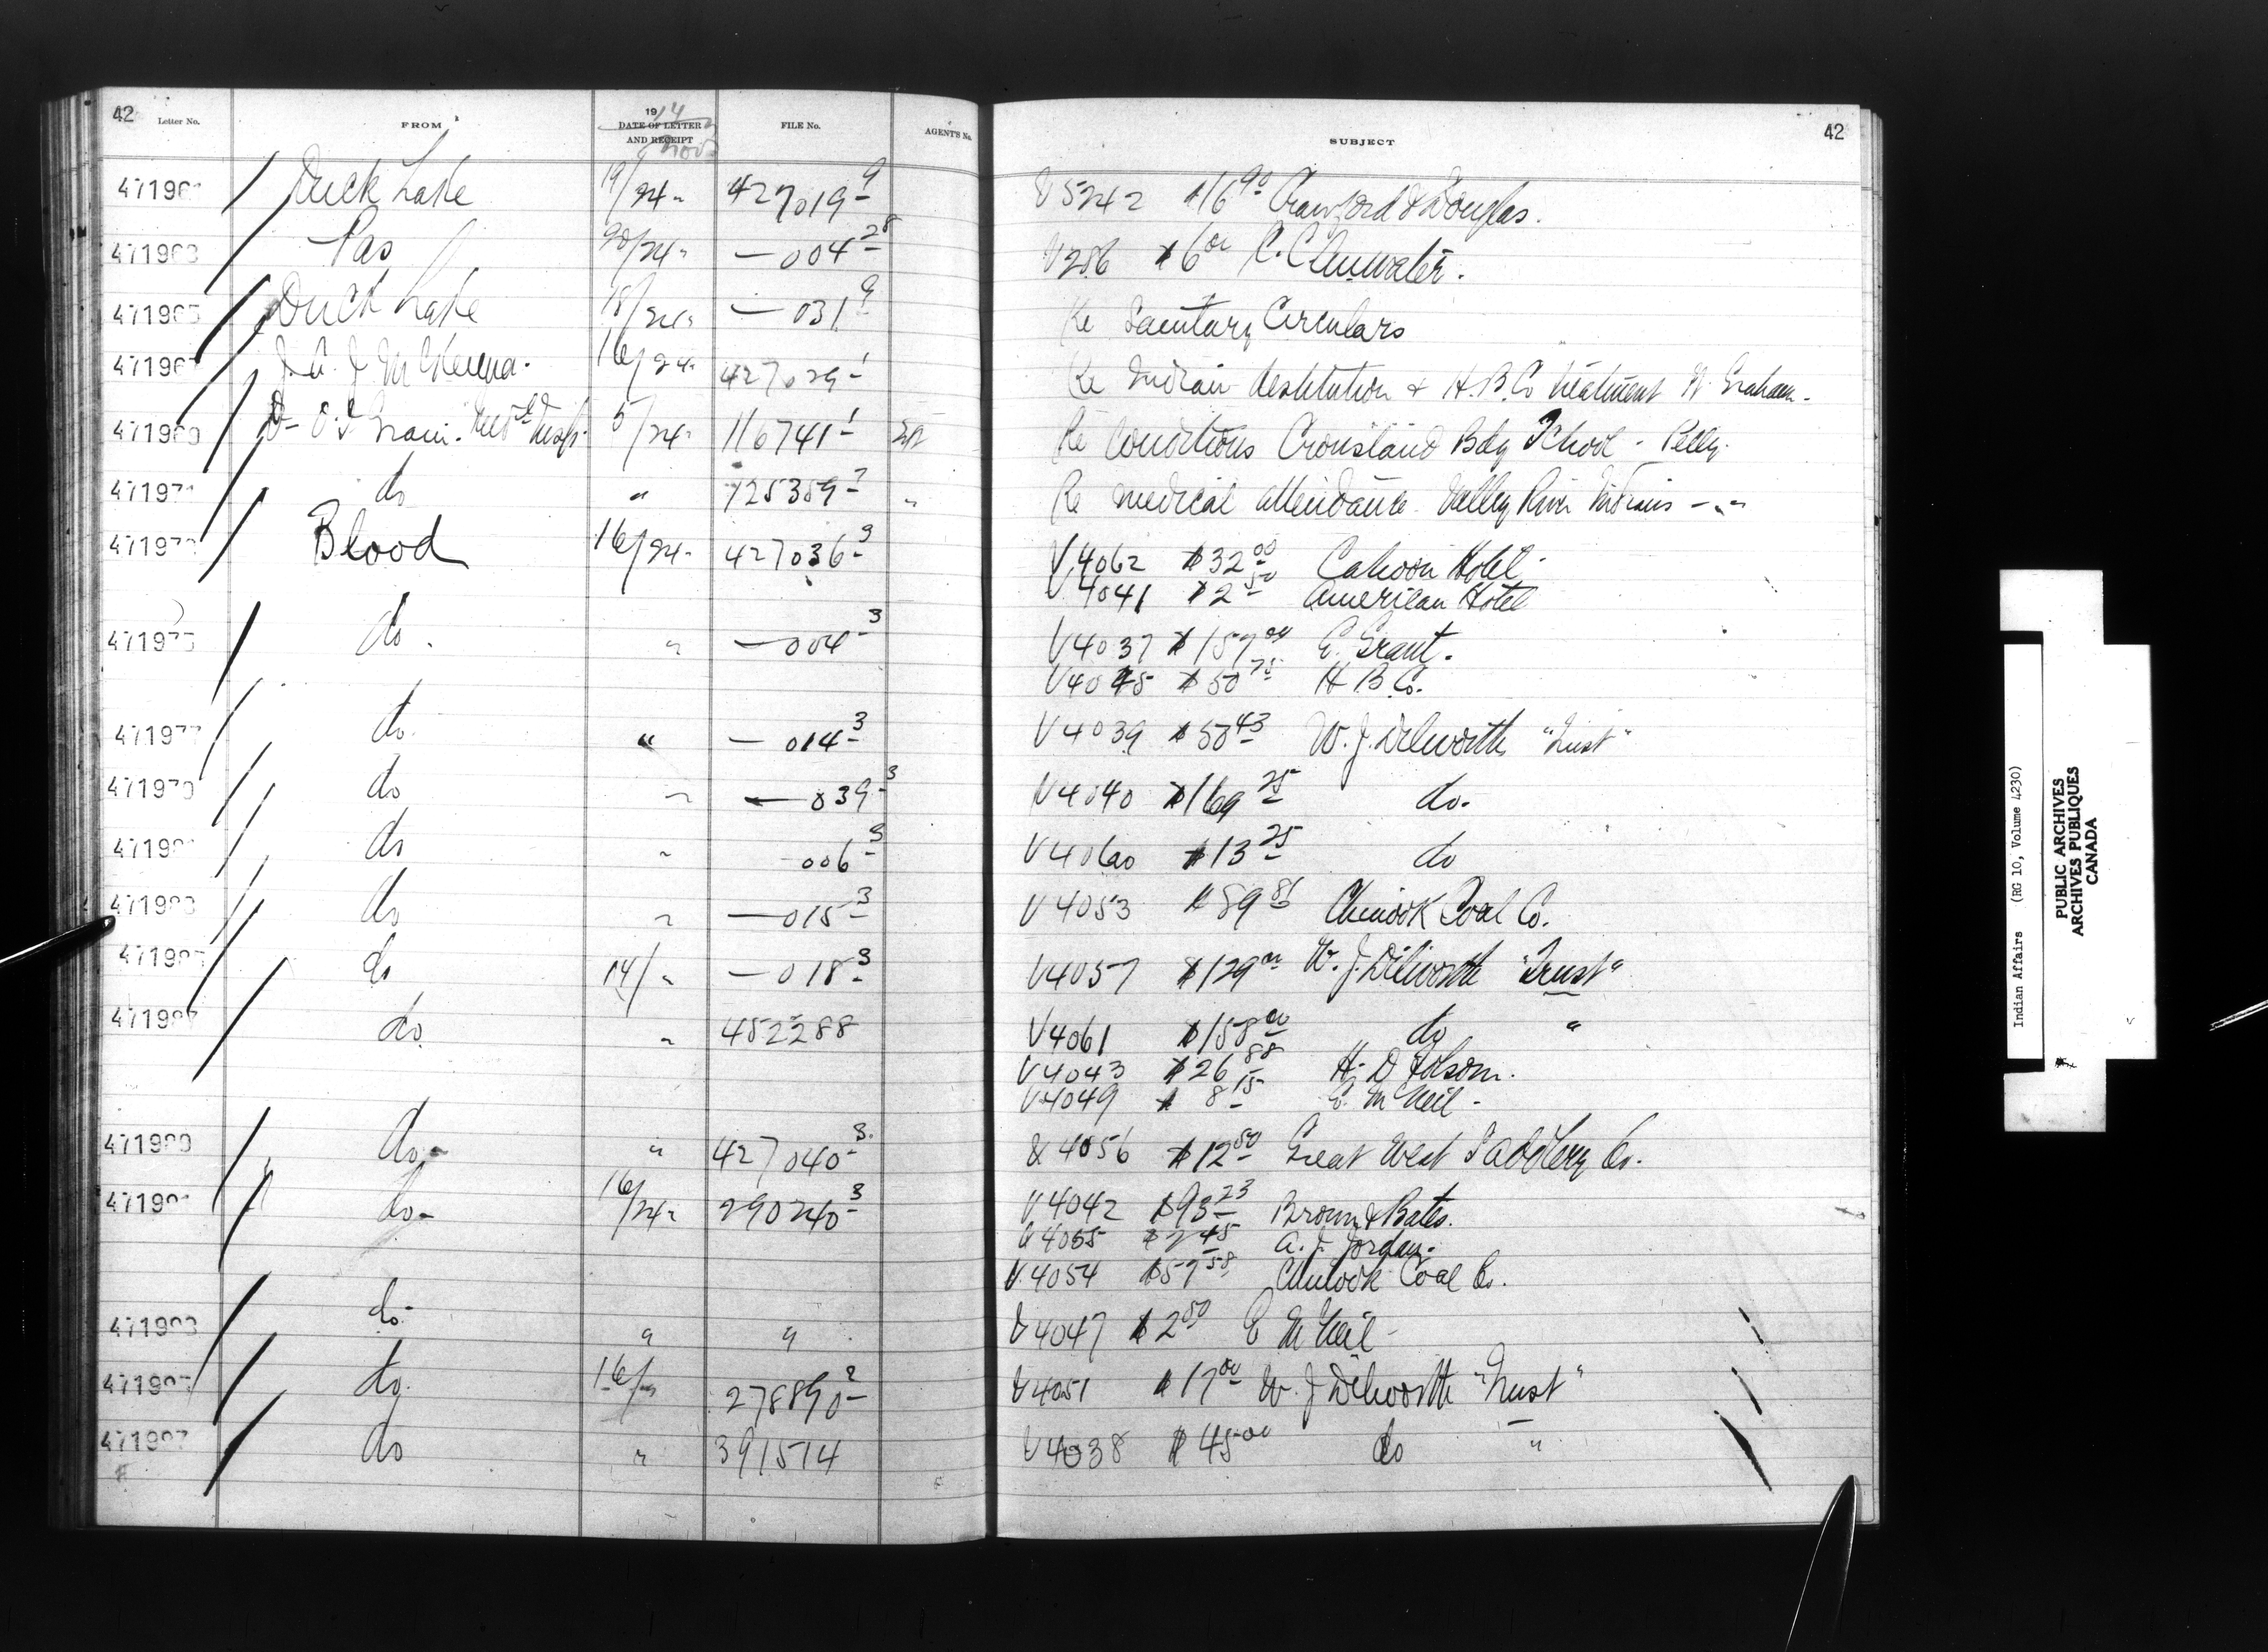 42 Letter No. FROM 1914 DATE OF LETTER AND RECEIPT Nov FILE No. AGENT'S No. SUBJECT 42
471961 Duck Lake 19/24 " 427019-9 V5242 $16 90 Crawford & Douglas.
471963 Pas 20/24 " — 004-28 V286 $6 00 C. Clearwater.
471965 Duck Lake 18/24 " — 031-9 Re Sanitary Circulars
471967 J. A. J. McKenna. 16/24 " 427029-1 Re Indian destitution & H.B.Co treatment Ft. Graham.
471969 Dr O. I. Grain. Med Insp. 5/24 " 116741-1 Re Conditions Crowstand Bdg School - Pelly.
471971 do " 125359-7 " Re medical attendance Valley River Indians - " -
471973 Blood 16/24 - 427036-3 V4062 $32 00 Cahoon Hotel.
V4041 $2 50 American Hotel
471975 do. " — 004-3 V4037 $157 00 E. Grant.
V4045 $50 75 H B Co.
471977 do. " — 014-3 V4039 $50 43 W. J. Dilworth "Trust"
471979 do " — 039-3 V4040 $169 25 do.
471981 do " 006-3 V4060 $13 25 do
471983 do " — 015-3 V4053 $89 81 Chinook Coal Co.
471985 do 14/ " — 018-3 V4057 $129 00 W. J. Dilworth "Trust"
471987 do " 452288 V4061 $158 00 do "
V4043 $26 88 H. D Folsom.
V4049 $8 15 E. McNeil -
471989 do - " 427040-3 V4056 $12 50 Great West Saddlery Co.
471991 do - 16/24 " 290240-3 V4042 $93 23 Brown & Bates.
V4055 $2 45 A. J. Jordan.
V4054 $57 58 Chinook Coal Co.
471993 do - " " V4047 $2 50 E McNeil -
471995 do. 16/ " 278890-2 V4051 $17 00 W. J Dilworth "Trust"
471997 do " 391514 V4038 $45 00 do "
Indian Affairs (RG 10, Volume 4230)
PUBLIC ARCHIVES
ARCHIVES PUBLIQUES
CANADA